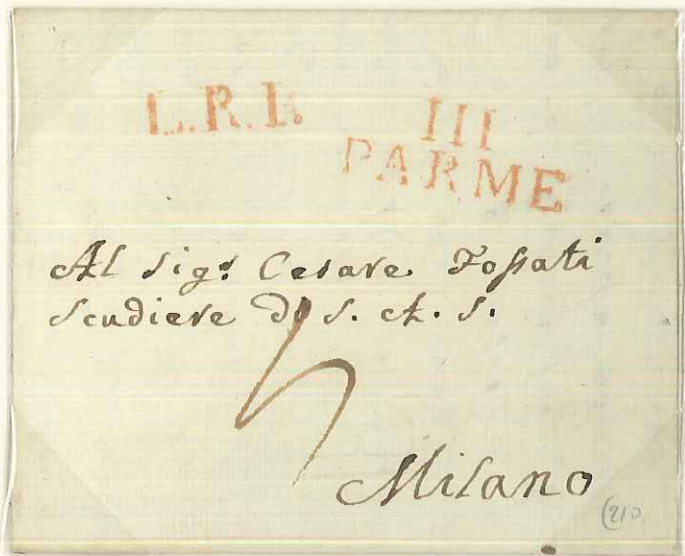 L.R.I.
III
PARME
Al Sigr. Cesare Fossati
Scudiere di S. A. S.
Milano
(210